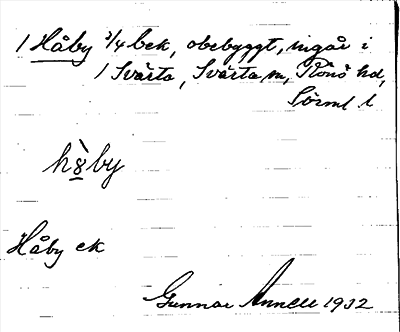 / Håby 3/4 bek, obebyggt, ingår i
/ Svärta, Svärta sn, Rönö hd,
Sörml l
hò8by
Håby ek
Gunnar Annell 1932